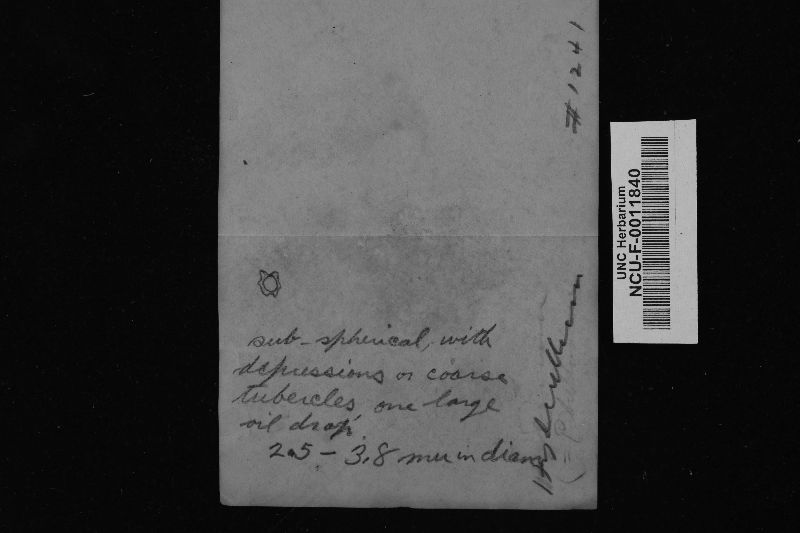 # 1241
sub-spherical, with
depressions or coarse
tubercles, one large
oil drop.
2.5 - 3.8 mu in diam
Hydnellum
UNC Herbarium
NCU-F-0011840